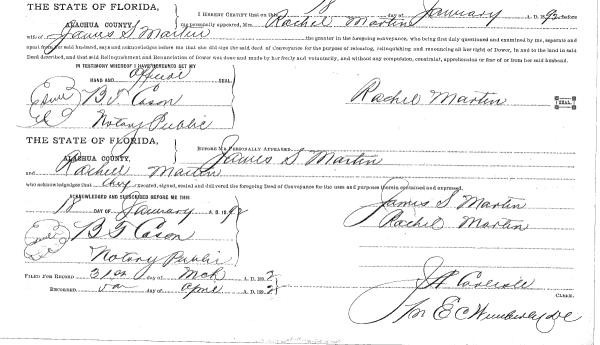 THE STATE OF FLORIDA,
ALACHUA COUNTY.
I HEREBY CERTIFY that on this 18 day of January A. D. 1892, before
me personally appeared, Mrs. Rachel Martin
wife of James S Martin the grantor in the foregoing conveyance, who being first duly questioned and examined by me, separate and
apart from her said husband, says and acknowledges before me that she did sign the said deed of Conveyance for the purpose of releasing, relinquishing and renouncing all her right of Dower, in and to the land in said
Deed described, and that said Relinquishment and Renunciation of Dower was done and made by her freely and voluntarily, and without any compulsion, constraint, apprehension or fear of or from her said husband.
IN TESTIMONY WHEREOF I HAVE HEREUNTO SET MY
HAND AND official SEAL
B. F. Cason
Notary Public
Rachel Martin SEAL
THE STATE OF FLORIDA,
ALACHUA COUNTY,
BEFORE ME PERSONALLY APPEARED James S Martin
and Rachell Martin
who acknowledges that they executed, signed, sealed and delivered the foregoing Deed of Conveyance for the uses and purposes therein contained and expressed.
ACKNOWLEDGED AND SUBSCRIBED BEFORE ME THIS
18 DAY OF January A. D. 1892
B F Cason
Notary Public
James S. Martin
Rachel Martin
FILED FOR RECORD 31st day of Mch A. D. 1892
RECORDED day of April A. D. 1892
CLERK.
E C Wimberley DC